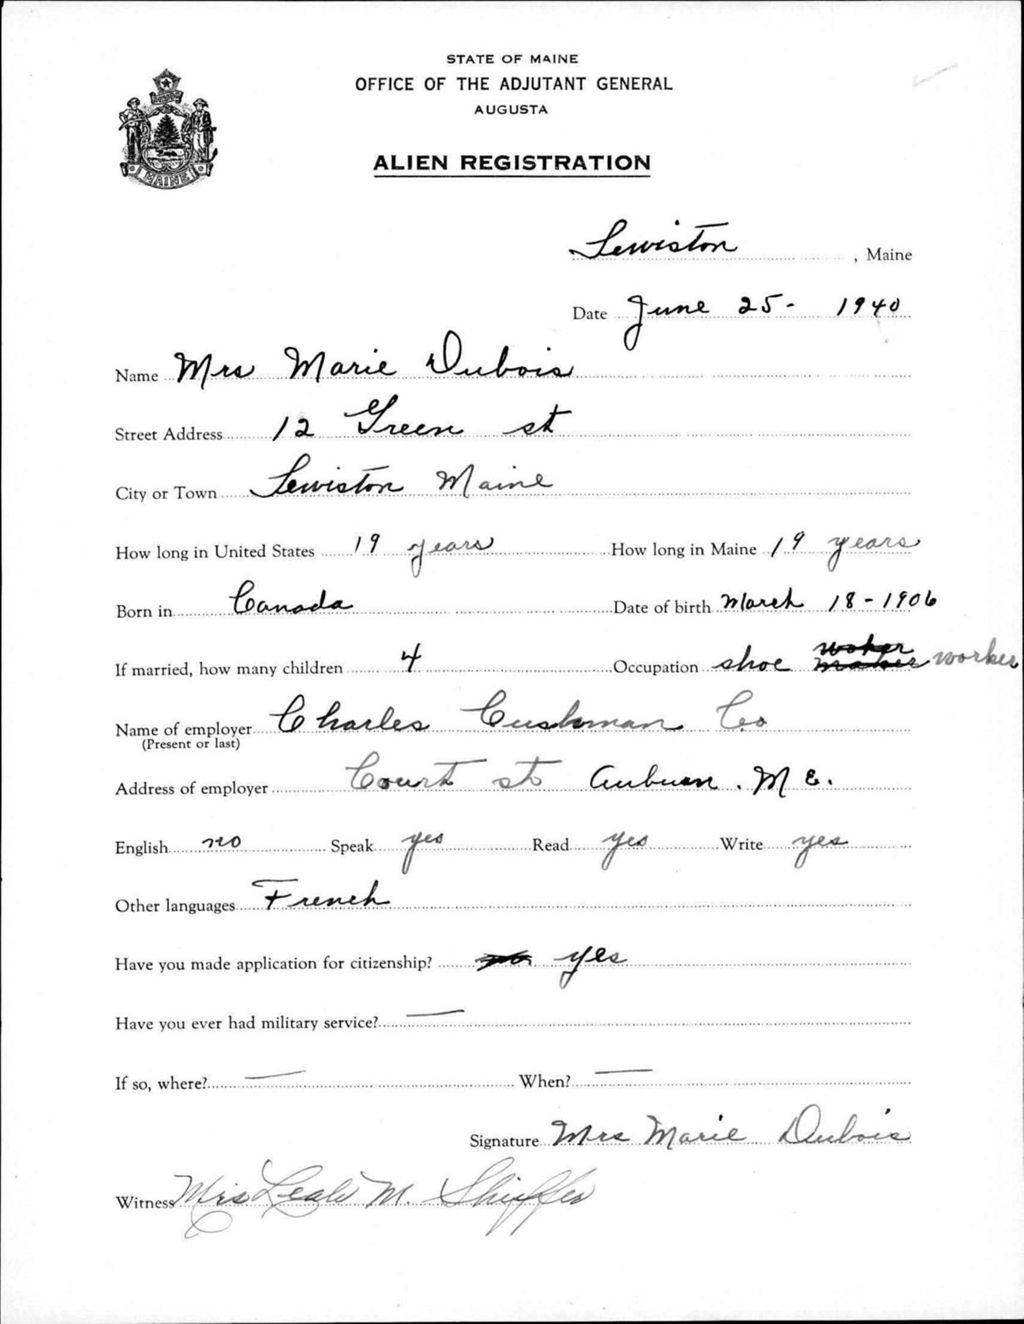 STATE OF MAINE
OFFICE OF THE ADJUTANT GENERAL
AUGUSTA
ALIEN REGISTRATION
MAINE
Lewiston, Maine
Date June 25 - 1940
Name Mrs Marie Dubois
Street Address 12 Green st
City or Town Lewiston Maine
How long in United States 19 years How long in Maine 19 years
Born in Canada Date of birth March 18 - 1906
If married, how many children 4 Occupation shoe worker
Name of employer Charles Cushman Co
(Present or last)
Address of employer Court st Auburn. ME.
English no Speak yes Read yes Write yes
Other languages French
Have you made application for citizenship? yes
Have you ever had military service? —
If so, where? — When? —
Signature Mrs Marie Dubois
Witness Mrs M.